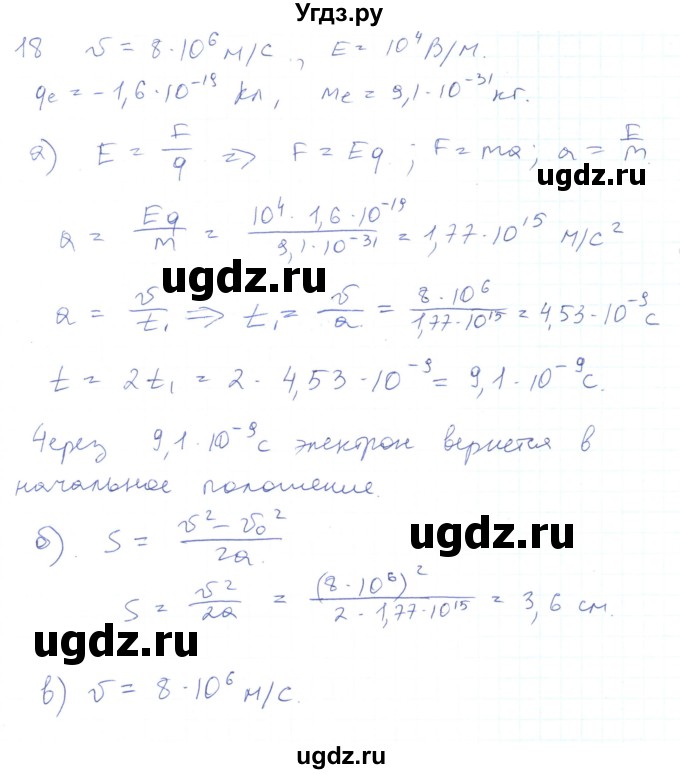 Угдз.ру
18 v = 8·10⁶ м/с , E = 10⁴ В/м.
qe = -1,6·10⁻¹⁹ Кл, me = 9,1·10⁻³¹ кг.
а) E = F/q => F = Eq ; F = ma ; a = F/m
ugdz.ru
a = Eq/m = 10⁴·1,6·10⁻¹⁹/9,1·10⁻³¹ = 1,77·10¹⁵ м/с²
ugdz.ru
a = v/t₁ => t₁ = v/a = 8·10⁶/1,77·10¹⁵ = 4,53·10⁻⁹ с
t = 2t₁ = 2·4,53·10⁻⁹ = 9,1·10⁻⁹ с.
Через 9,1·10⁻⁹ с электрон вернется в
начальное положение.
ugdz.ru
б). S = v² - v₀²/2a
S = v²/2a = (8·10⁶)²/2·1,77·10¹⁵ = 3,6 см.
ugdz.ru
в) v = 8·10⁶ м/с.
ugdz.ru